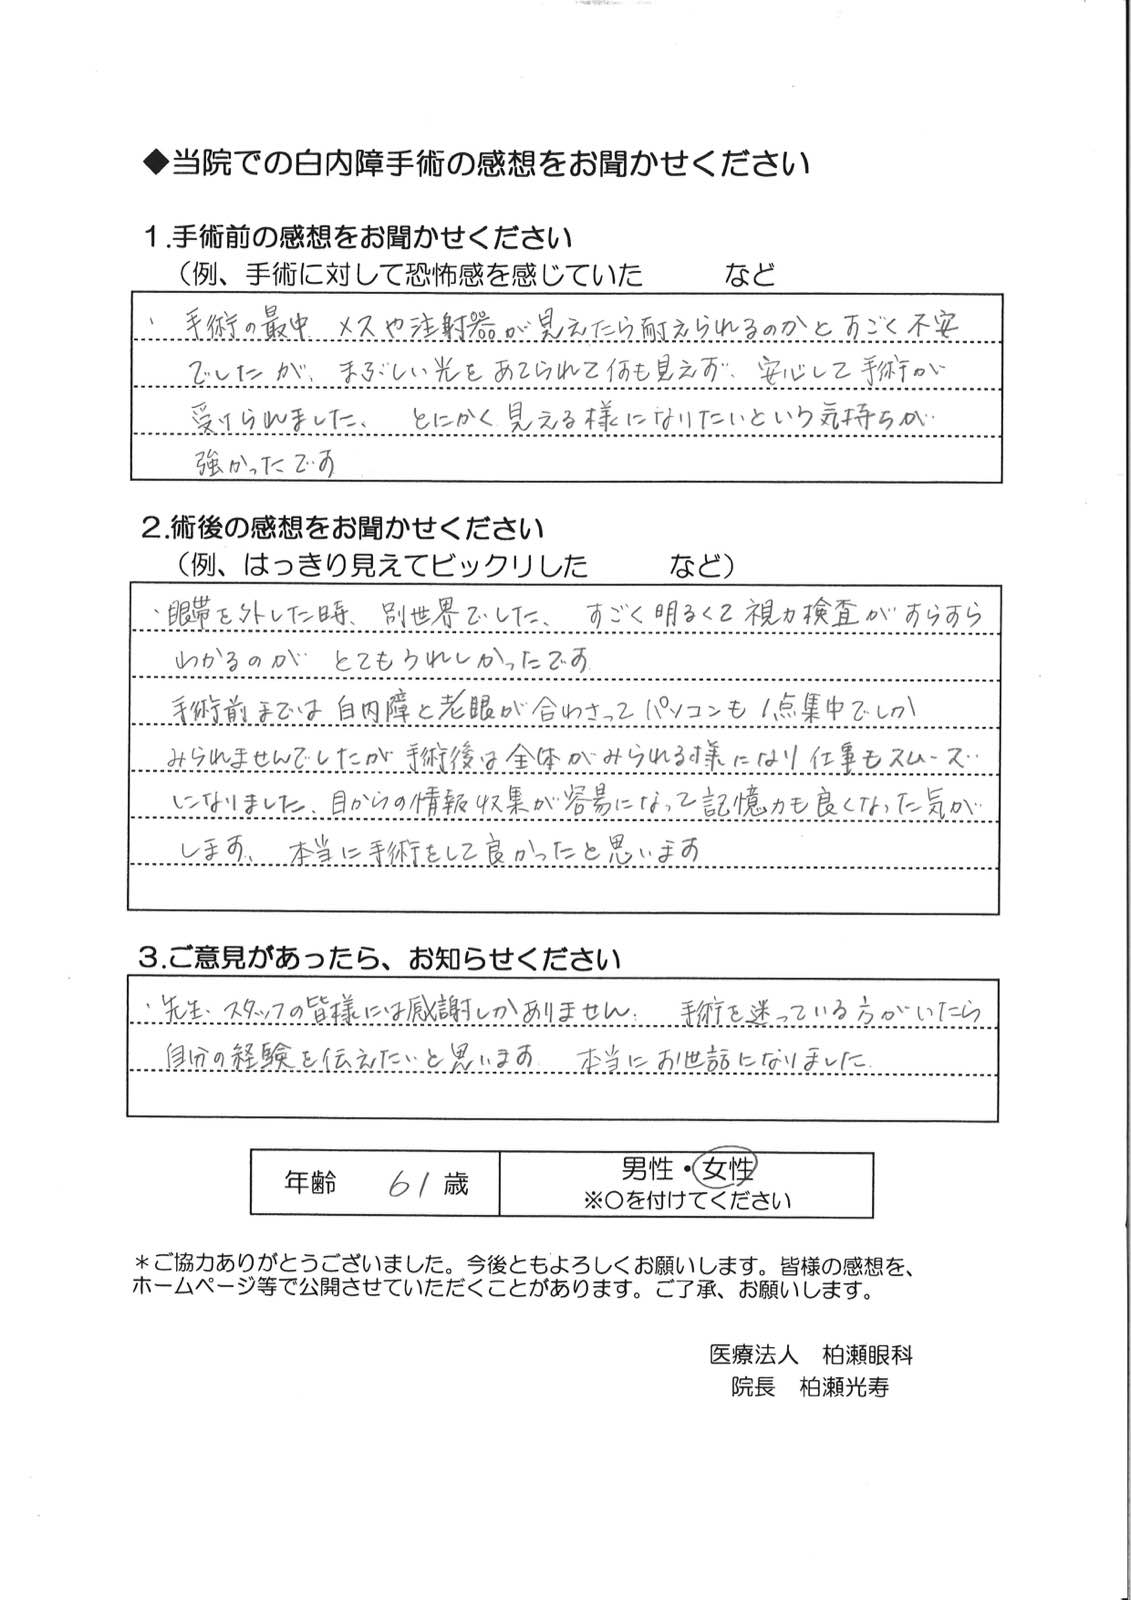 ◆当院での白内障手術の感想をお聞かせください
1.手術前の感想をお聞かせください
（例、手術に対して恐怖感を感じていた　　　など
・手術の最中、メスや注射器が見えたら耐えられるのかとすごく不安
でしたが、まぶしい光をあてられて何も見えず、安心して手術が
受けられました、　とにかく見える様になりたいという気持ちが
強かったです
2.術後の感想をお聞かせください
（例、はっきり見えてビックリした　　　など）
・眼帯を外した時、別世界でした、　すごく明るくて視力検査がすらすら
わかるのが　とてもうれしかったです
手術前までは白内障と老眼が合わさってパソコンも1点集中でしか
みられませんでしたが手術後は全体がみられる様になり仕事もスムーズ
になりました、目からの情報収集が容易になって記憶力も良くなった気が
します、　本当に手術をして良かったと思います
3.ご意見があったら、お知らせください
・先生、スタッフの皆様には感謝しかありません、　手術を迷っている方がいたら
自分の経験を伝えたいと思います　本当にお世話になりました
年齢　61歳　男性・女性
※○を付けてください
＊ご協力ありがとうございました。今後ともよろしくお願いします。皆様の感想を、
ホームページ等で公開させていただくことがあります。ご了承、お願いします。
医療法人　柏瀬眼科
院長　柏瀬光寿